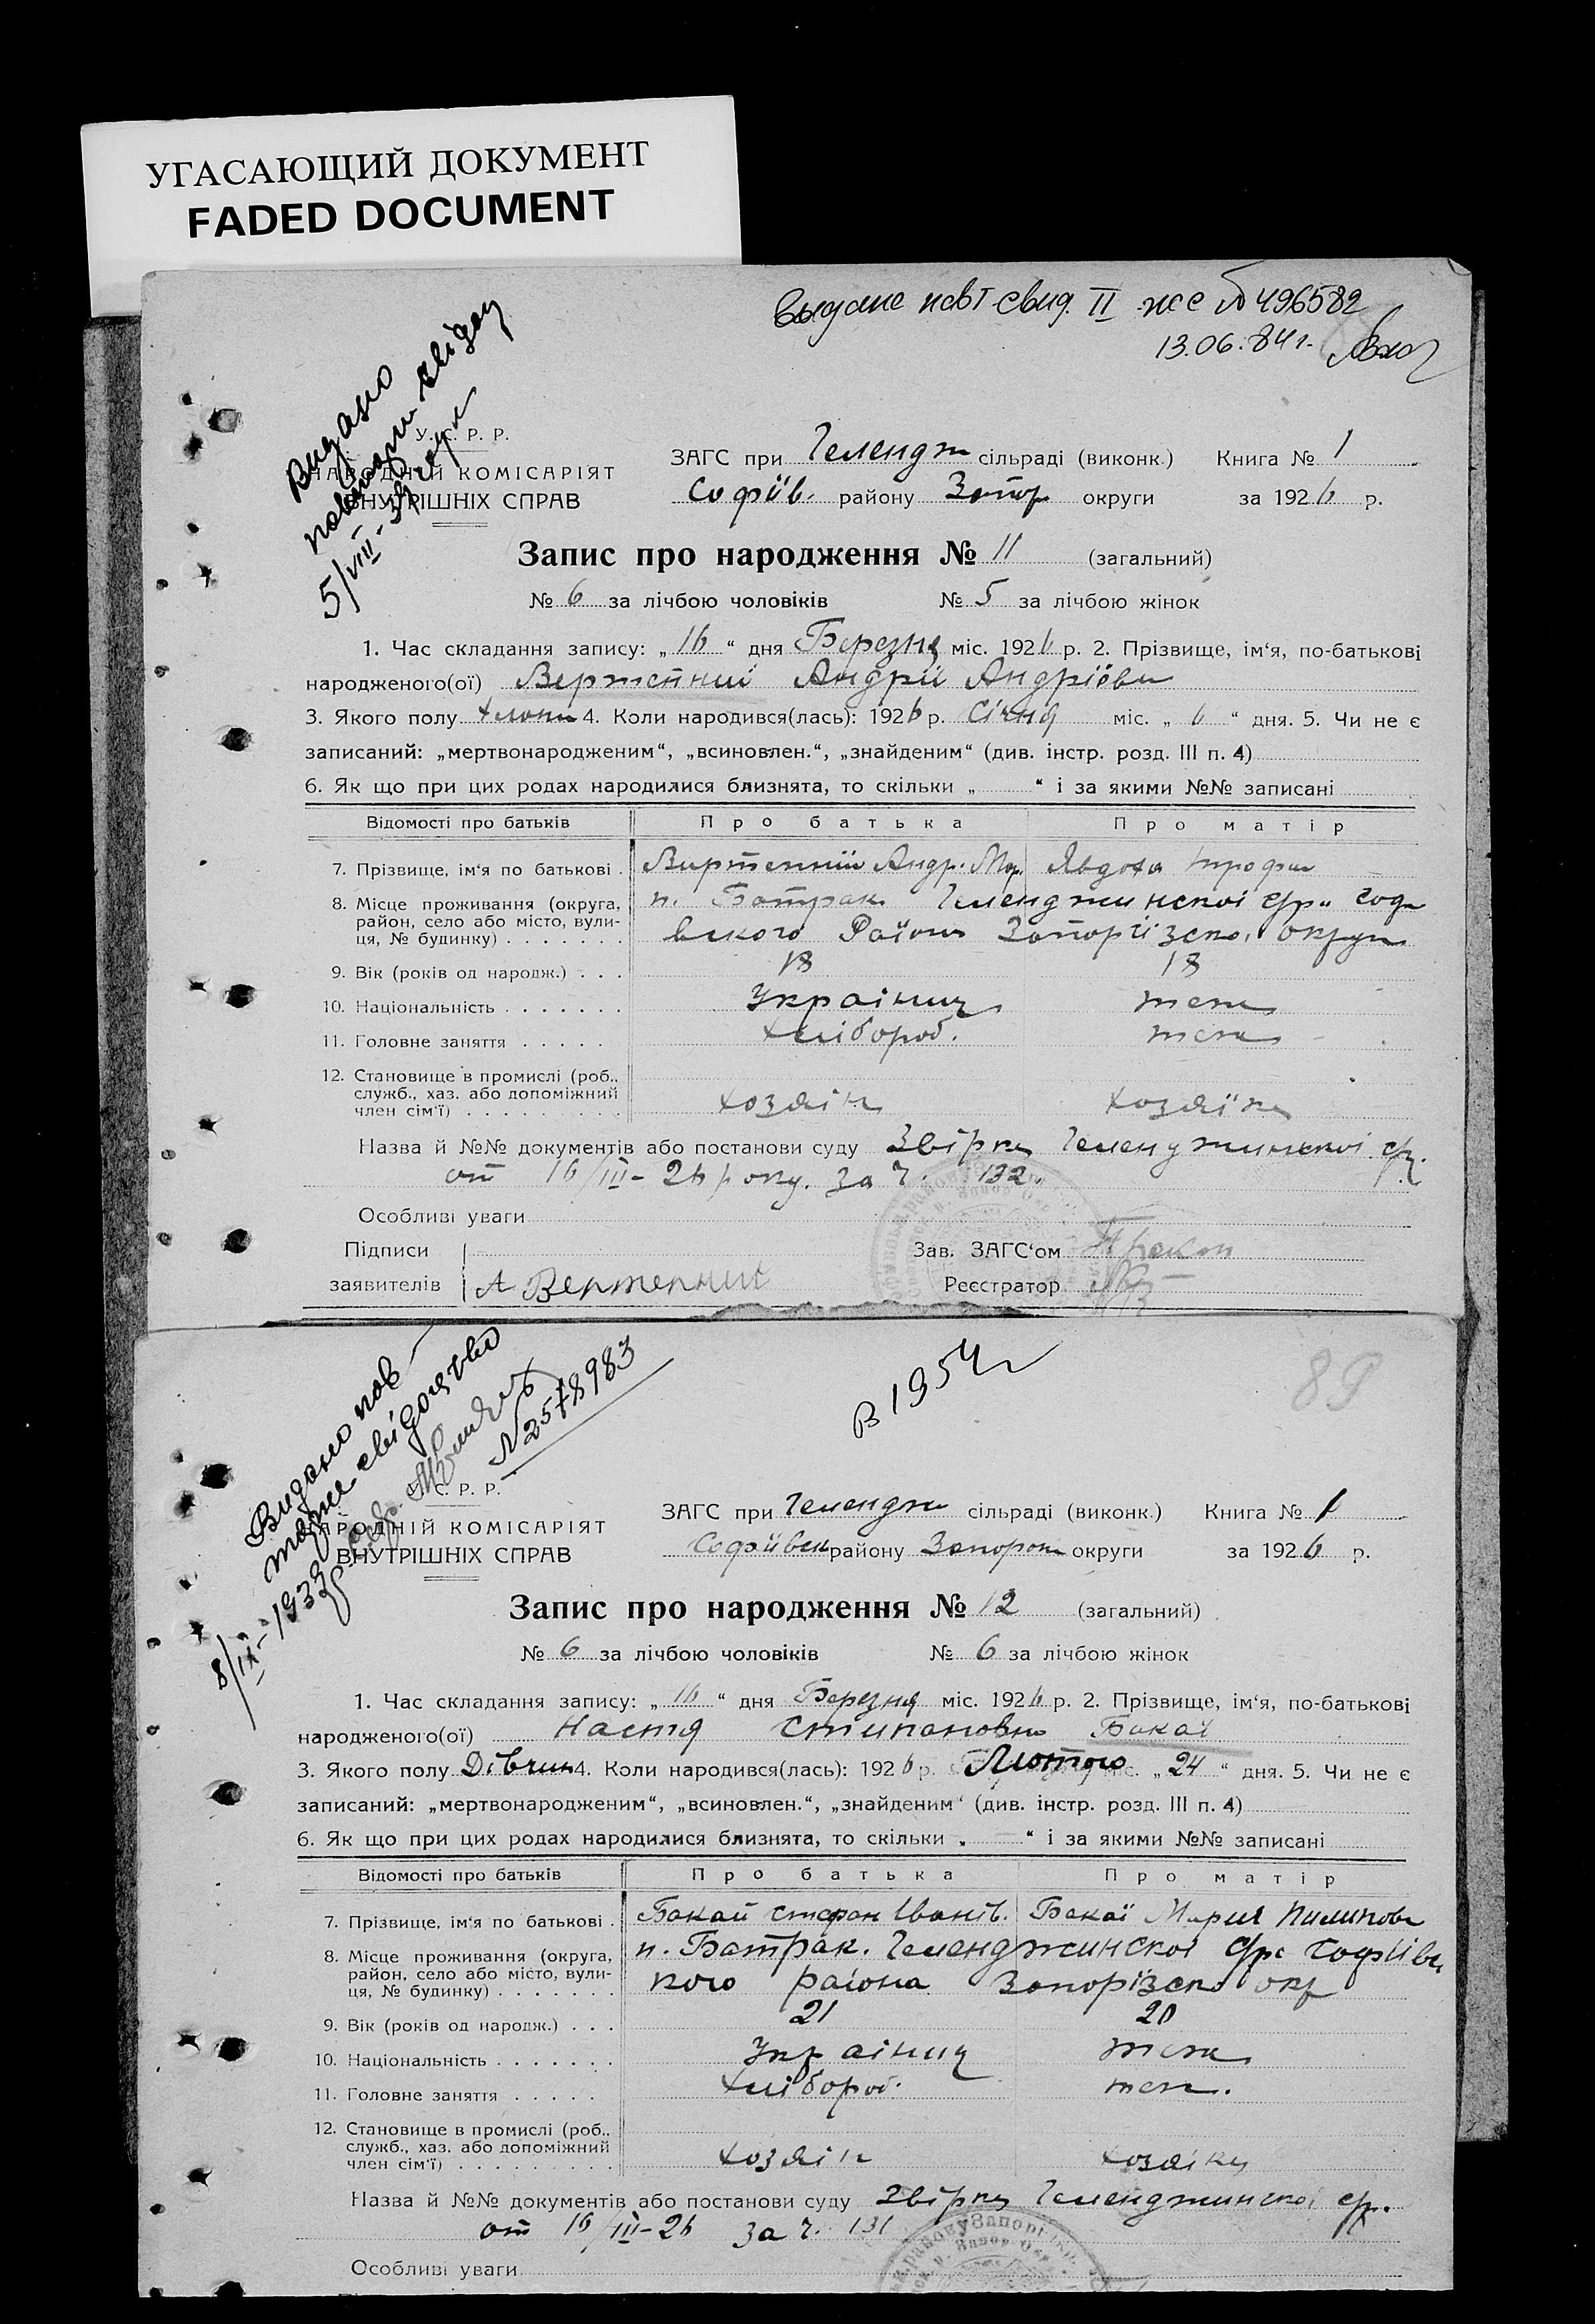 УГАСАЮЩИЙ ДОКУМЕНТ
FADED DOCUMENT
Выдане повт свид. II-жс № 496582
13.06.84 г.
Видано
повторн свідоц
5/VIII-39
У. С. Р. Р.
НАРОДНІЙ КОМІСАРІЯТ
ВНУТРІШНІХ СПРАВ
ЗАГС при Челендж сільраді (виконк.) Книга № 1
Софіїв. району Запор округи за 1926 р.
Запис про народження № 11 (загальний)
№ 6 за лічбою чоловіків № 5 за лічбою жінок
1. Час складання запису: „16“ дня Березня міс. 1926 р. 2. Прізвище, ім‘я, по-батькові
народженого(ої) Вертепний Андрій Андріёви
3. Якого полу хлопч 4. Коли народився(лась): 1926 р. Січня міс. „6“ дня. 5. Чи не є
записаний: „мертвонародженим“, „всиновлен.“, „знайденим“ (див. інстр. розд. III п. 4)
6. Як що при цих родах народилися близнята, то скільки „ “ і за якими №№ записані
Відомості про батьків Про батька Про матір
7. Прізвище, ім‘я по батькові . Виртепний Андр. Мор. Явдоха Трофим
8. Місце проживання (округа, район, село або місто, вулиця, № будинку) . . . . . . . п. Батрак Челенджинскоі с/р. Софи
вского Району Запорізско, округи
9. Вік (років од народж.) . . . 18 18
10. Національність . . . . . . . Украінец теж
11. Головне заняття . . . . . Хлібороб. теж
12. Становище в промислі (роб.,
служб., хаз. або допоміжний
член сім‘ї) . . . . . . . . . хозяін хозяїка
Назва й №№ документів або постанови суду Звірка Челенджинскоі с/р.
от 16/III-26 року. за ч. 132.
Особливі уваги
Підписи Зав. ЗАГС‘ом
заявителів А Вертепний Реєстратор
Видано пов
торне свідоцтво
№ 2578983
8/IX-1933
В 1954 г
89
У. С. Р. Р.
НАРОДНІЙ КОМІСАРІЯТ
ВНУТРІШНІХ СПРАВ
ЗАГС при Челендж сільраді (виконк.) Книга № 1
Софіївск району Запорож округи за 1926 р.
Запис про народження № 12 (загальний)
№ 6 за лічбою чоловіків № 6 за лічбою жінок
1. Час складання запису: „16“ дня Березня міс. 1926 р. 2. Прізвище, ім‘я, по-батькові
народженого(ої) Настя Стипановна Бакаї
3. Якого полу Дівчин 4. Коли народився(лась): 1926 р. Лютого міс. „24“ дня. 5. Чи не є
записаний: „мертвонародженим“, „всиновлен.“, „знайденим“ (див. інстр. розд. III п. 4)
6. Як що при цих родах народилися близнята, то скільки „ “ і за якими №№ записані
Відомості про батьків Про батька Про матір
7. Прізвище, ім‘я по батькові . Бакай Стефан Іванів. Бакаї Мария Пилиповн
8. Місце проживання (округа, район, село або місто, вулиця, № будинку) . . . . . . . п. Батрак. Челенджинскоі с/р. Софіівс
кого района Запорізско окр
9. Вік (років од народж.) . . . 21 20
10. Національність . . . . . . . Украінец теж
11. Головне заняття . . . . . Хлібороб. теж.
12. Становище в промислі (роб.,
служб., хаз. або допоміжний
член сім‘ї) . . . . . . . . . хозяін хозяіка
Назва й №№ документів або постанови суду Звірка Челенджинскоі с/р.
от 16/III-26 за ч. 131
Особливі уваги